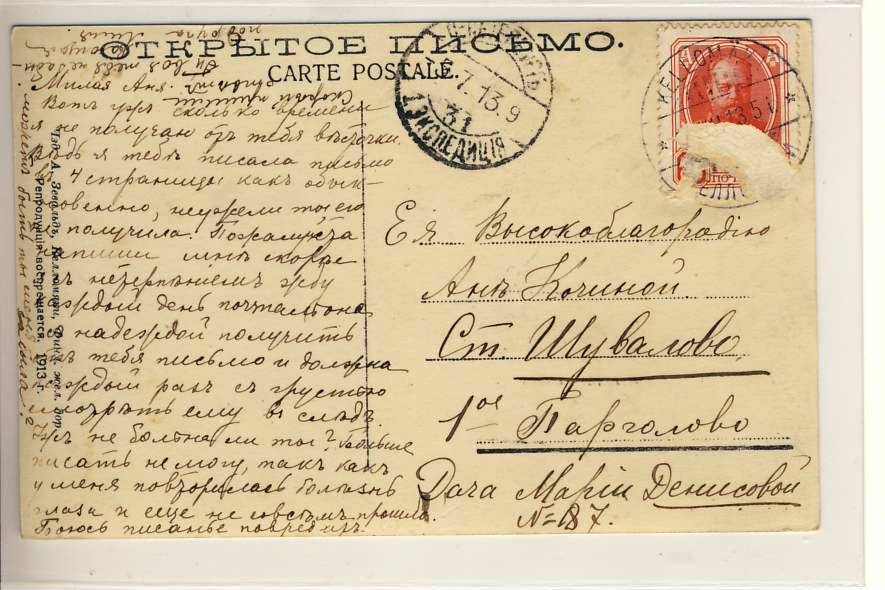 ОТКРЫТОЕ ПИСЬМО.
CARTE POSTALE.
Милая Аня.
Вотъ ужъ сколько времени
я не получаю отъ тебя вѣсточки.
Вѣдь я тебѣ писала письмо
въ 4 страницы какъ обык-
новенно, неужели ты его
получила. Пожалуйста
напиши мнѣ скорѣе
съ нетерпѣніемъ жду
каждый день почтальона
съ надеждой получить
отъ тебя письмо и должна
каждый разъ съ грустью
смотрѣть ему въ слѣдъ.
Ужъ не больна ли ты? Больше
писать не могу, такъ какъ
у меня повторилась болѣзнь
глаза и еще не совсѣмъ прошла.
Боюсь писанье повредитъ.
можетъ быть ты
Изд. А. Зевальдъ, Келломяки, Финл. жел. дор.
Репродукція воспрещается. 1913 г.
7.13.9
31
1 ЭКСПЕДИЦІЯ
KELLOMÄKI
Ея Высокоблагородію
Анѣ Кочиной
Ст. Шувалово
1ое Парголово
Дача Маріи Денисовой
№ 187.